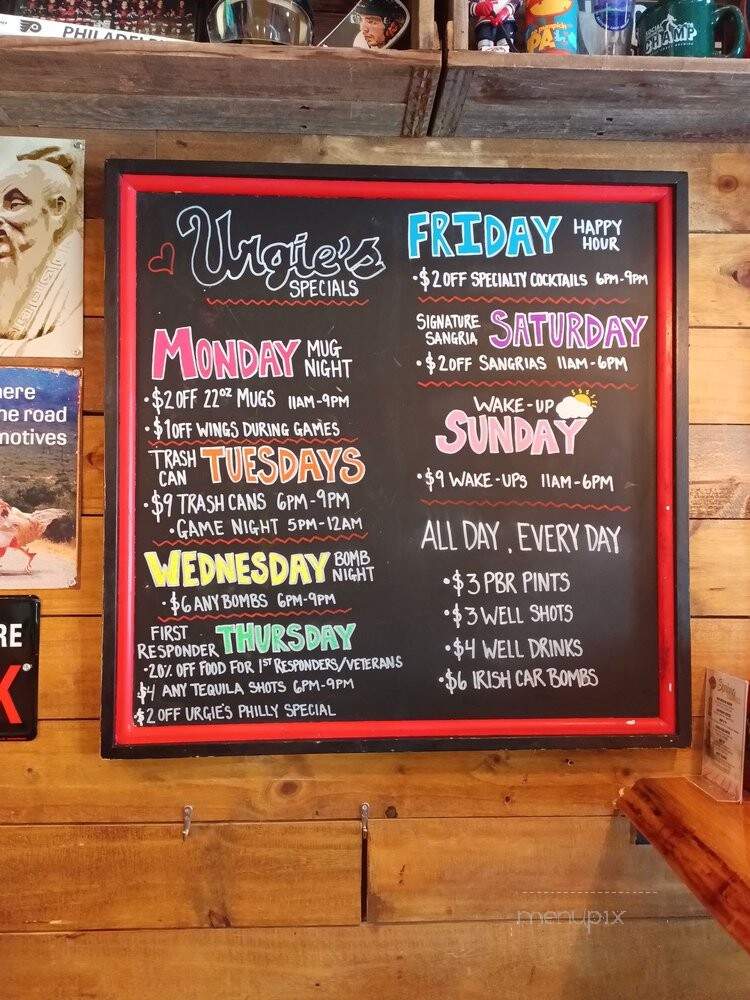 PHILADEL
CHAMP
here
he road
motives
RE
K
Urgie's
SPECIALS
MONDAY MUG NIGHT
• $2 OFF 22oz MUGS 11AM-9PM
• $1 OFF WINGS DURING GAMES
TRASH CAN TUESDAYS
• $9 TRASH CANS 6PM-9PM
• GAME NIGHT 5PM-12AM
WEDNESDAY BOMB NIGHT
• $6 ANY BOMBS 6PM-9PM
FIRST RESPONDER THURSDAY
• 20% OFF FOOD FOR 1ST RESPONDERS/VETERANS
$4 ANY TEQUILA SHOTS 6PM-9PM
$2 OFF URGIE'S PHILLY SPECIAL
FRIDAY HAPPY HOUR
• $2 OFF SPECIALTY COCKTAILS 6PM-9PM
SIGNATURE SANGRIA SATURDAY
• $2 OFF SANGRIAS 11AM-6PM
WAKE-UP
SUNDAY
• $9 WAKE-UPS 11AM-6PM
ALL DAY, EVERY DAY
• $3 PBR PINTS
• $3 WELL SHOTS
• $4 WELL DRINKS
• $6 IRISH CAR BOMBS
menupix